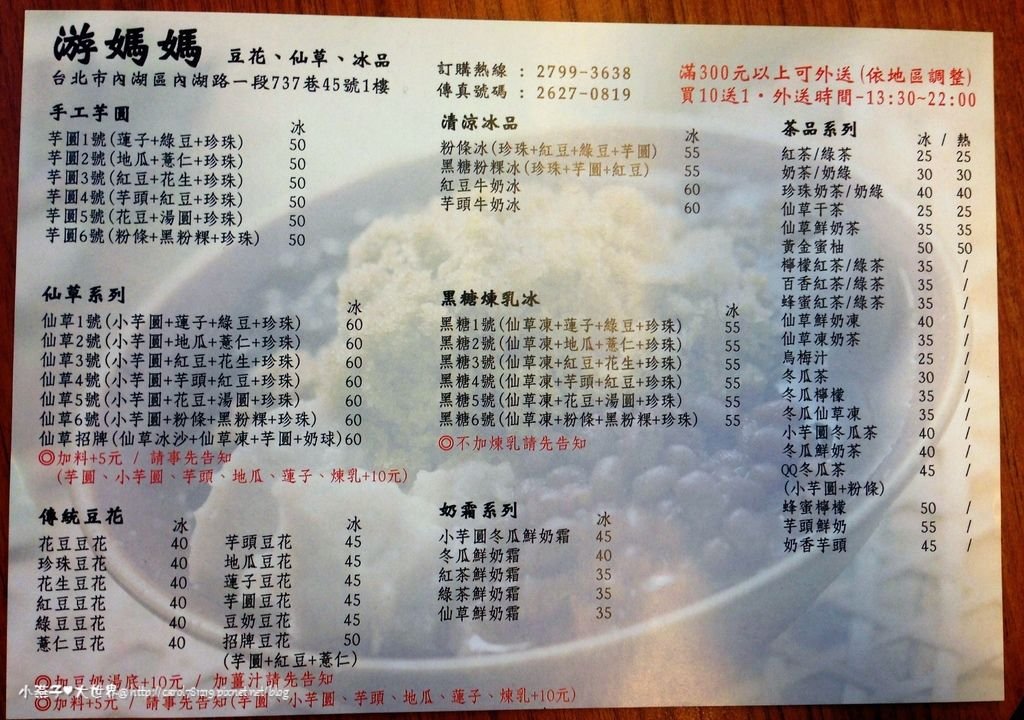 游媽媽 豆花、仙草、冰品
台北市內湖區內湖路一段737巷45號1樓
訂購熱線：2799-3638
傳真號碼：2627-0819
滿300元以上可外送(依地區調整)
買10送1·外送時間-13:30~22:00
手工芋圓
冰
芋圓1號(蓮子+綠豆+珍珠) 50
芋圓2號(地瓜+薏仁+珍珠) 50
芋圓3號(紅豆+花生+珍珠) 50
芋圓4號(芋頭+紅豆+珍珠) 50
芋圓5號(花豆+湯圓+珍珠) 50
芋圓6號(粉條+黑粉粿+珍珠) 50
清涼冰品
冰
粉條冰(珍珠+紅豆+綠豆+芋圓) 55
黑糖粉粿冰(珍珠+芋圓+紅豆) 55
紅豆牛奶冰 60
芋頭牛奶冰 60
仙草系列
冰
仙草1號(小芋圓+蓮子+綠豆+珍珠) 60
仙草2號(小芋圓+地瓜+薏仁+珍珠) 60
仙草3號(小芋圓+紅豆+花生+珍珠) 60
仙草4號(小芋圓+芋頭+紅豆+珍珠) 60
仙草5號(小芋圓+花豆+湯圓+珍珠) 60
仙草6號(小芋圓+粉條+黑粉粿+珍珠) 60
仙草招牌(仙草冰沙+仙草凍+芋圓+奶球) 60
◎加料+5元 / 請事先告知
(芋圓、小芋圓、芋頭、地瓜、蓮子、煉乳+10元)
黑糖煉乳冰
冰
黑糖1號(仙草凍+蓮子+綠豆+珍珠) 55
黑糖2號(仙草凍+地瓜+薏仁+珍珠) 55
黑糖3號(仙草凍+紅豆+花生+珍珠) 55
黑糖4號(仙草凍+芋頭+紅豆+珍珠) 55
黑糖5號(仙草凍+花豆+湯圓+珍珠) 55
黑糖6號(仙草凍+粉條+黑粉粿+珍珠) 55
◎不加煉乳請先告知
傳統豆花
冰 冰
花豆豆花 40 芋頭豆花 45
珍珠豆花 40 地瓜豆花 45
花生豆花 40 蓮子豆花 45
紅豆豆花 40 芋圓豆花 45
綠豆豆花 40 豆奶豆花 45
薏仁豆花 40 招牌豆花 50
(芋圓+紅豆+薏仁)
◎加豆奶湯底+10元 / 加薑汁請先告知
◎加料+5元 / 請事先告知(芋圓、小芋圓、芋頭、地瓜、蓮子、煉乳+10元)
奶霜系列
冰
小芋圓冬瓜鮮奶霜 45
冬瓜鮮奶霜 40
紅茶鮮奶霜 35
綠茶鮮奶霜 35
仙草鮮奶霜 35
茶品系列
冰 / 熱
紅茶/綠茶 25 25
奶茶/奶綠 30 30
珍珠奶茶/奶綠 40 40
仙草干茶 25 25
仙草鮮奶茶 35 35
黃金蜜柚 50 50
檸檬紅茶/綠茶 35 /
百香紅茶/綠茶 35 /
蜂蜜紅茶/綠茶 35 /
仙草鮮奶凍 40 /
仙草凍奶茶 35 /
烏梅汁 25 /
冬瓜茶 30 /
冬瓜檸檬 35 /
冬瓜仙草凍 35 /
小芋圓冬瓜茶 40 /
冬瓜鮮奶茶 40 /
QQ冬瓜茶 45 /
(小芋圓+粉條)
蜂蜜檸檬 50 /
芋頭鮮奶 55 /
奶香芋頭 45 /
小燕子♥大世界